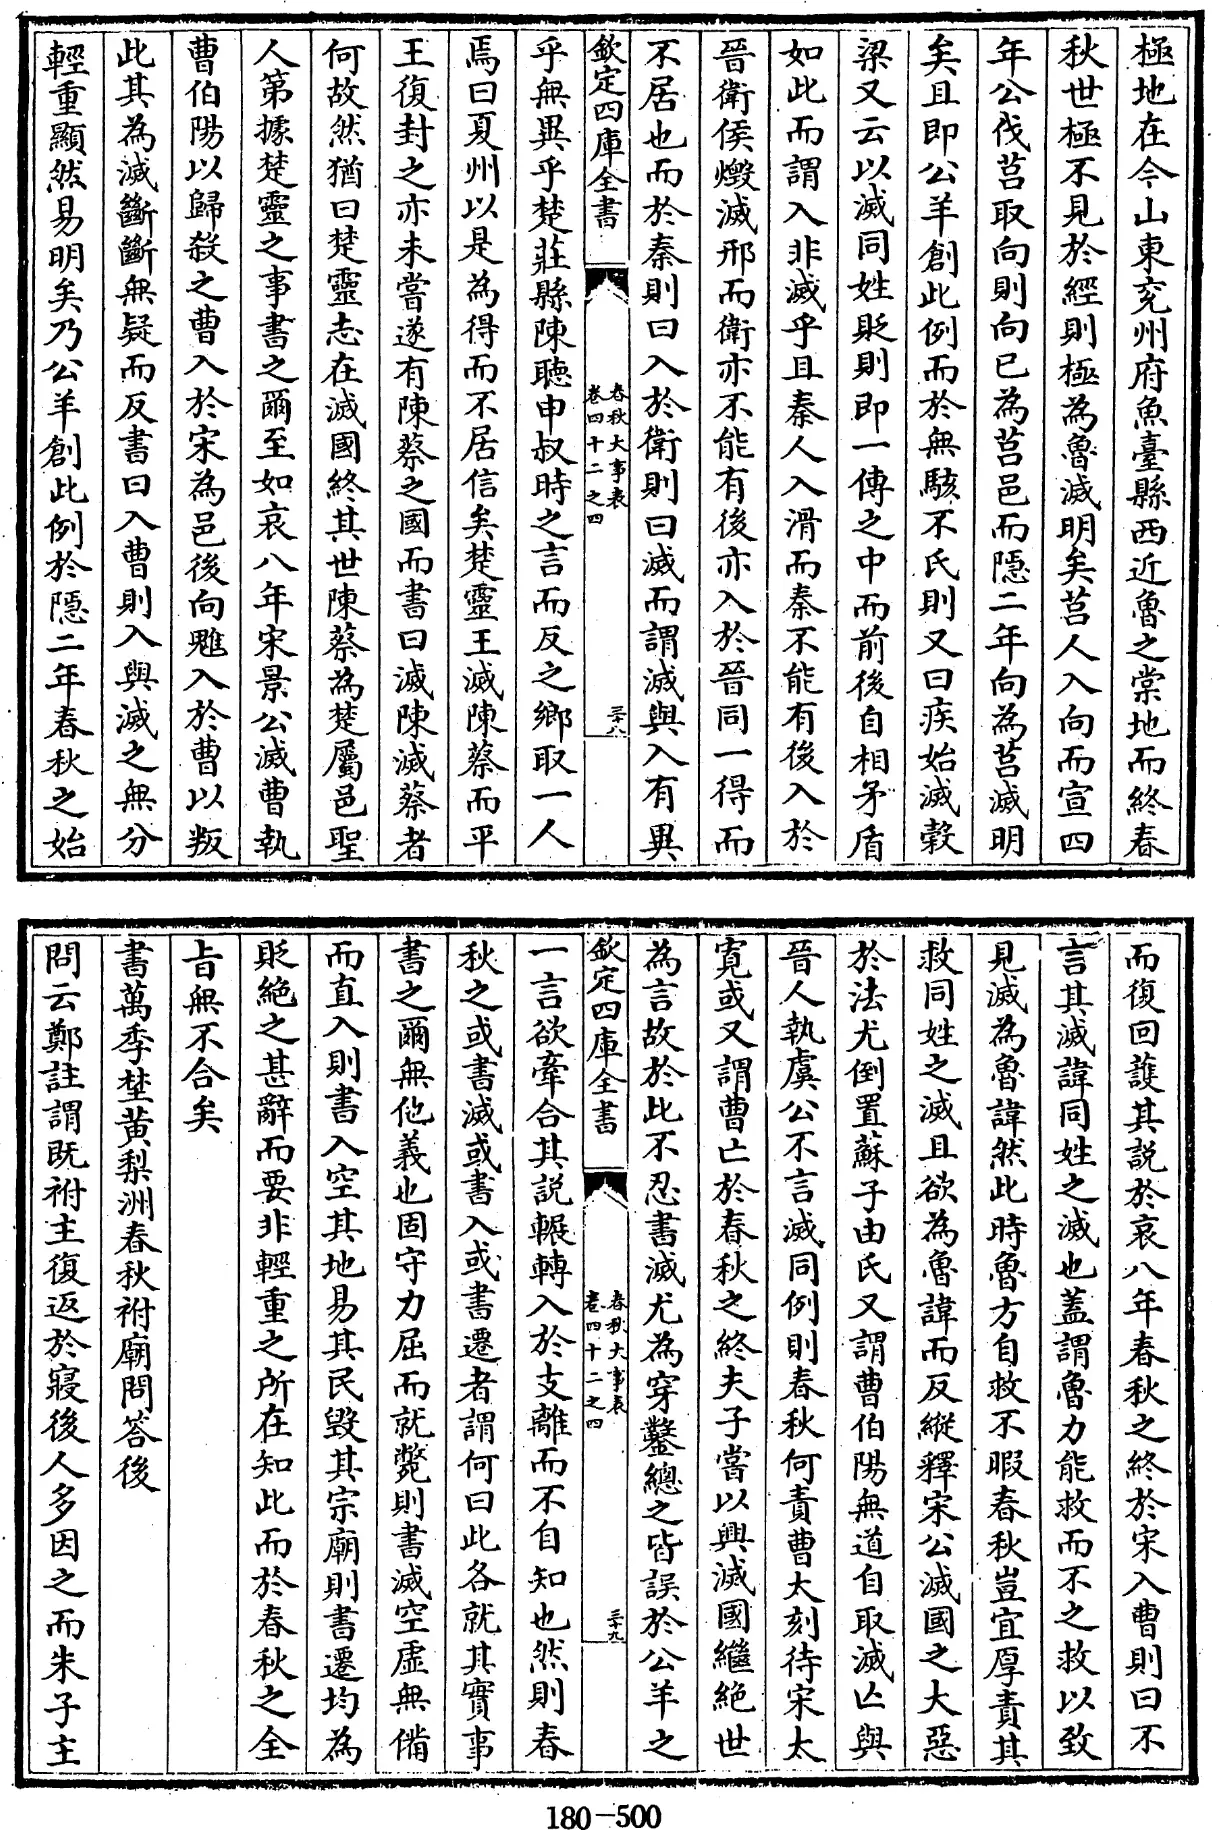 極地在今山東兖州府魚臺縣西近魯之棠地而終春
秋世極不見於經則極為魯滅明矣莒人入向而宣四
年公伐莒取向則向已為莒邑而隱二年向為莒滅明
矣且即公羊創此例而於無駭不氏則又曰疾始滅穀
梁又云以滅同姓貶則即一傳之中而前後自相矛盾
如此而謂入非滅乎且秦人入滑而秦不能有後入於
晉衛侯燬滅邢而衛亦不能有後亦入於晉同一得而
不居也而於秦則曰入於衛則曰滅而謂滅與入有異
欽定四庫全書
春秋大事表
卷四十二之四
三十八
乎無異乎楚莊縣陳聽申叔時之言而反之鄉取一人
焉曰夏州以是為得而不居信矣楚靈王滅陳蔡而平
王復封之亦未嘗遂有陳蔡之國而書曰滅陳滅蔡者
何故然猶曰楚靈志在滅國終其世陳蔡為楚屬邑聖
人第據楚靈之事書之爾至如哀八年宋景公滅曹執
曹伯陽以歸殺之曹入於宋為邑後向魋入於曹以叛
此其為滅斷斷無疑而反書曰入曹則入與滅之無分
輕重顯然易明矣乃公羊創此例於隱二年春秋之始
而復回護其説於哀八年春秋之終於宋入曹則曰不
言其滅諱同姓之滅也蓋謂魯力能救而不之救以致
見滅為魯諱然此時魯方自救不暇春秋豈宜厚責其
救同姓之滅且欲為魯諱而反縱釋宋公滅國之大惡
於法尤倒置蘇子由氏又謂曹伯陽無道自取滅亾與
晉人執虞公不言滅同例則春秋何責曹太刻待宋太
寛或又謂曹亡於春秋之終夫子嘗以興滅國繼絶世
為言故於此不忍書滅尤為穿鑿總之皆誤於公羊之
欽定四庫全書
春秋大事表
卷四十二之四
三十九
一言欲牽合其説輾轉入於支離而不自知也然則春
秋之或書滅或書入或書遷者謂何曰此各就其實事
書之爾無他義也固守力屈而就斃則書滅空虛無備
而直入則書入空其地易其民毀其宗廟則書遷均為
貶絶之甚辭而要非輕重之所在知此而於春秋之全
㫖無不合矣
書萬季埜黄梨洲春秋祔廟問答後
問云鄭註謂既祔主復返於寢後人多因之而朱子主
180-500